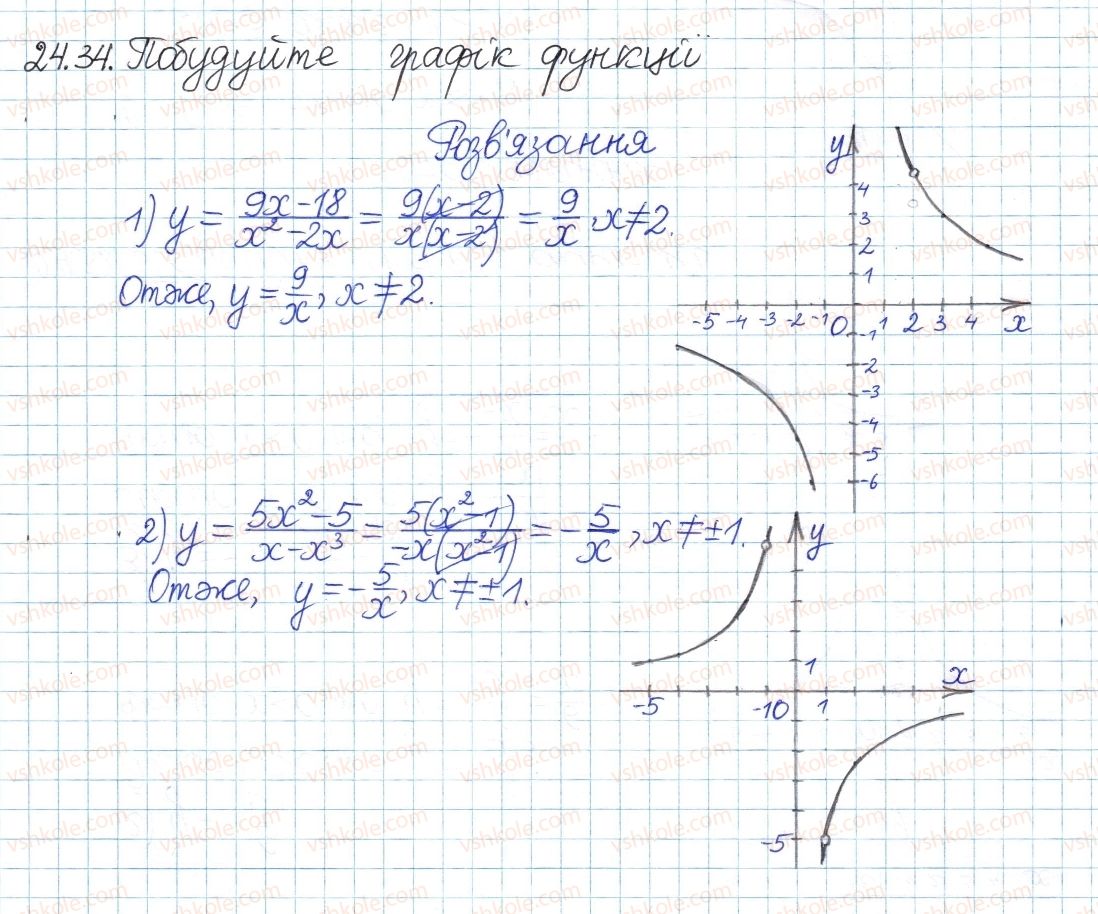 24.34. Побудуйте графік функції
Розв'язання
1) y = (9x-18)/(x²-2x) = 9(x-2)/(x(x-2)) = 9/x, x≠2.
Отже, y = 9/x, x≠2.
y
4
3
2
1
-5 -4 -3 -2 -1 0 1 2 3 4 x
-1
-2
-3
-4
-5
-6
2) y = (5x²-5)/(x-x³) = 5(x²-1)/(-x(x²-1)) = -5/x, x≠±1.
Отже, y = -5/x, x≠±1.
y
1
x
-5 -1 0 1
-5
vshkole.com